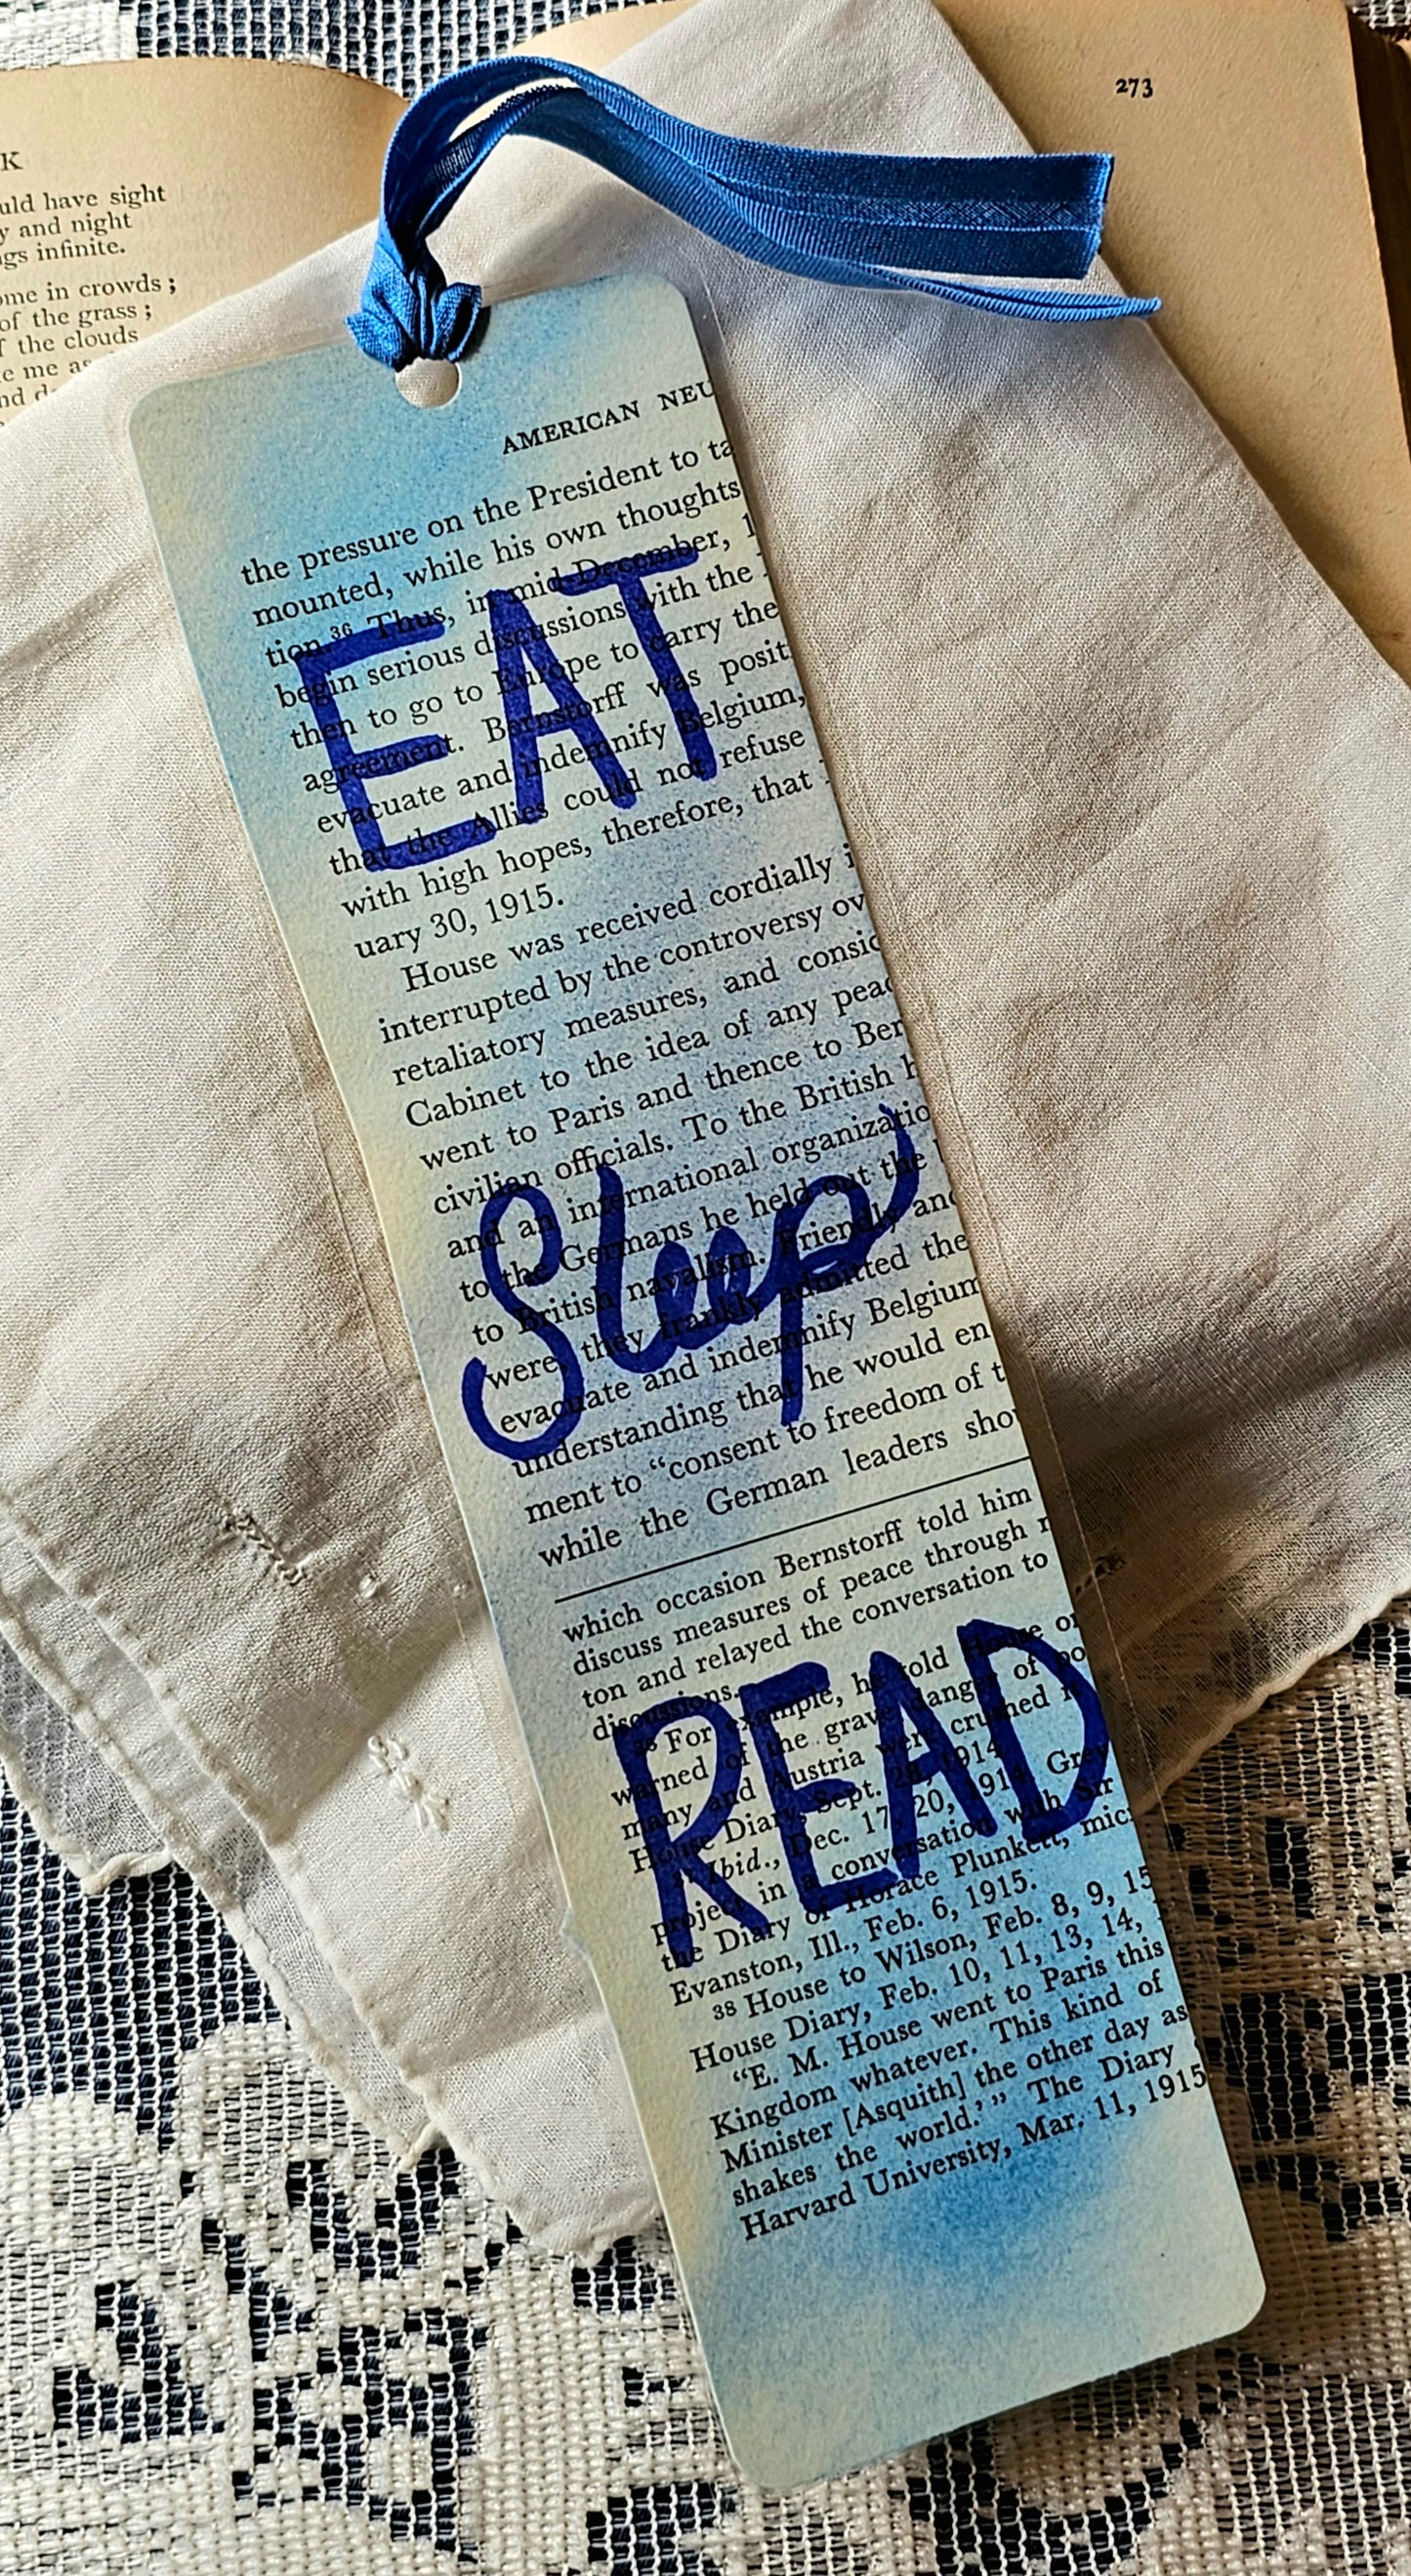 273
K
uld have sight
y and night
gs infinite.
ome in crowds;
of the grass;
f the clouds
e me as
nd d
AMERICAN NEU
the pressure on the President to ta
mounted, while his own thoughts
tion.36 Thus, in mid-December, 1
begin serious discussions with the
then to go to Europe to carry the
agreement. Bernstorff was posit
evacuate and indemnify Belgium,
that the Allies could not refuse
with high hopes, therefore, that
uary 30, 1915.
EAT
House was received cordially i
interrupted by the controversy ov
retaliatory measures, and consid
Cabinet to the idea of any peac
went to Paris and thence to Ber
civilian officials. To the British h
and an international organizatio
to the Germans he held out the
to British navalism. Friendly and
were, they frankly admitted the
evacuate and indemnify Belgium
understanding that he would en
ment to “consent to freedom of t
while the German leaders sho
Sleep
which occasion Bernstorff told him
discuss measures of peace through
ton and relayed the conversation to
discussions.
36 For example, he told House or
warned of the grave danger of po
many and Austria were crushed
House Diary, Sept. 28, 1914
Ibid., Dec. 17, 20, 1914. Grey
project in a conversation with Sir
the Diary of Horace Plunkett, mic
Evanston, Ill., Feb. 6, 1915.
38 House to Wilson, Feb. 8, 9, 15
House Diary, Feb. 10, 11, 13, 14,
“E. M. House went to Paris this
Kingdom whatever. This kind of
Minister [Asquith] the other day as
shakes the world.’” The Diary
Harvard University, Mar. 11, 1915
READ